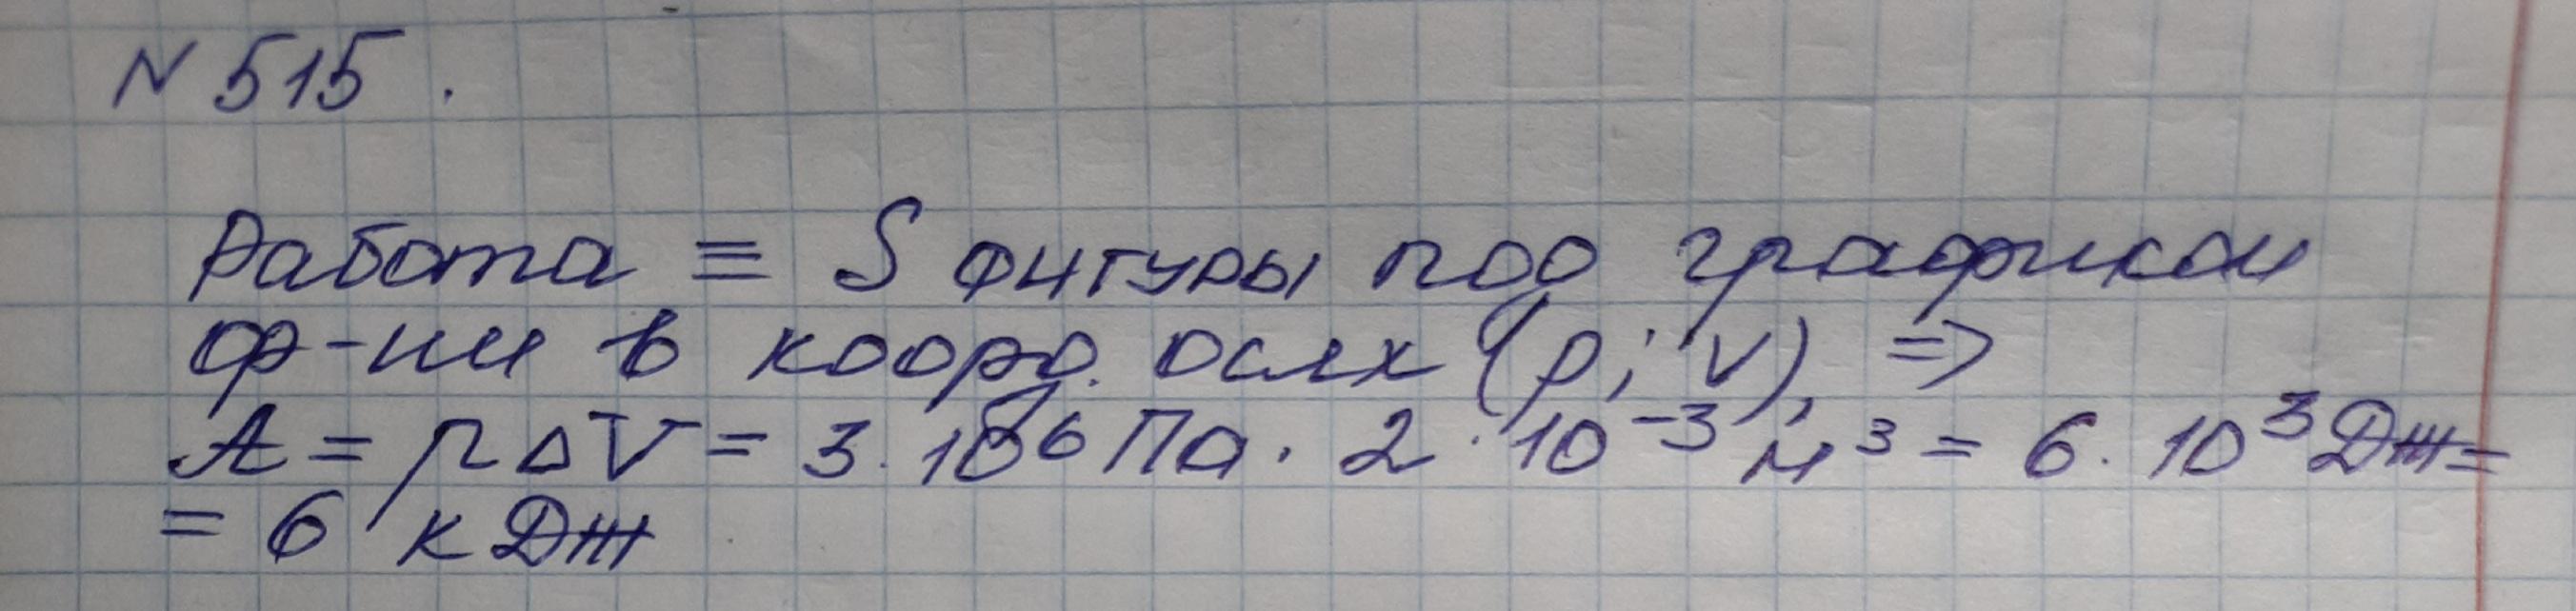 N 515.
Работа = S фигуры под графиком
ф-ии в коорд. осях (p; V) =>
A = p∆V = 3·10⁶ Па · 2·10⁻³ м³ = 6·10³ Дж =
= 6 кДж